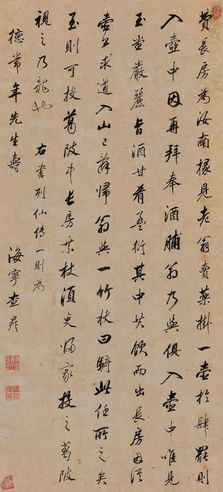 費長房為汝南掾見老翁賣藥掛一壺於肆罷則
入壺中因再拜奉酒脯翁乃與俱入壺中唯見
玉堂嚴麗旨酒甘肴盈衍其中共飲而出長房因從
壺公求道入山已辭歸翁與一竹杖曰騎此任所之矣
至則可投葛陂中長房乘杖須臾歸家投之葛陂
視之乃龍也 右書列仙傳一則為
德常年先生壽
海寧查昇